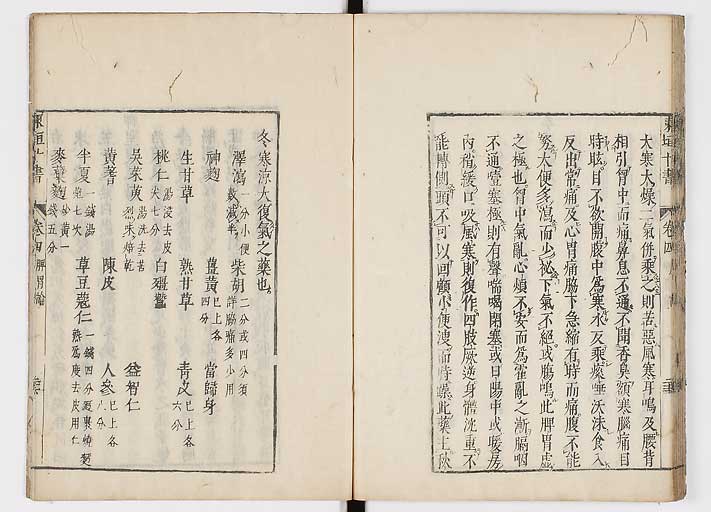 大寒大燥二氣併乘之則苦惡風寒耳鳴及腰背
相引胷中而痛鼻息不通不聞香臭額寒腦痛目
時眩目不欲開腹中爲寒水反乘痰唾沃沫食入
反出常痛及心胃痛脇下急縮有時而痛腹不能
努大便多瀉而少祕下氣不絕或腸鳴此脾胃虛
之極也胷中氣亂心煩不安而爲霍亂之漸膈咽
不通噎塞極則有聲喘喝閉塞或日陽中或暖房
內稍緩口吸風寒則復作四肢厥逆身體沈重不
能轉側頭不可以回顧小便溲而時躁此藥主秋
冬寒涼大復氣之藥也
澤瀉 一分小便數減半 柴胡 二分或四分須詳脇痛多少用
神麴 薑黃 已上各四分 當歸身
生甘草 熟甘草 青皮 已上各六分
桃仁 湯浸去皮尖七分 白殭蠶
吳茱萸 湯洗去苦烈味焙乾 益智仁
黃耆 陳皮 人參 已上各八分
半夏 一錢湯炮七次 草豆蔻仁 一錢四分麵裹燒麵熟爲度去皮用仁
麥蘖麵 炒黃一錢五分
東垣十書 卷四 脾胃論
東垣十書 卷四